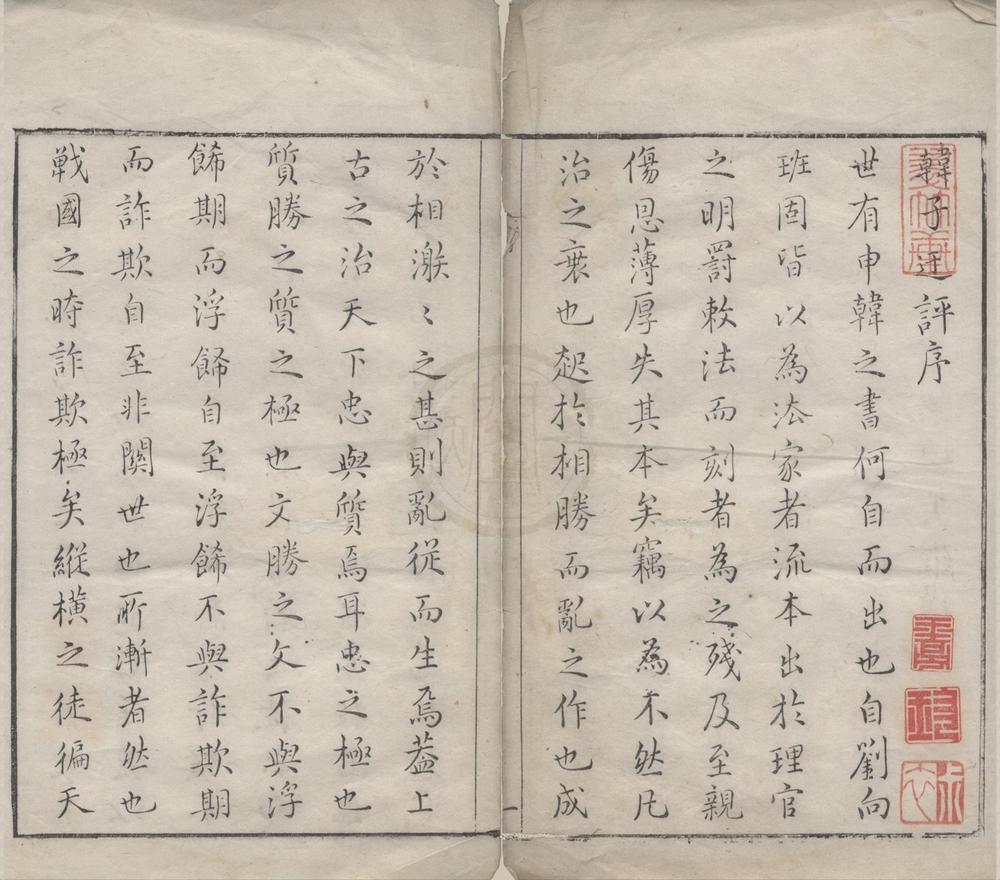 韓子迂評序
世有申韓之書何自而出也自劉向
班固皆以為法家者流本出於理官
之明罰敕法而刻者為之殘及至親
傷恩薄厚失其本矣竊以為不然凡
治之衰也起於相勝而亂之作也成
於相激〻之甚則亂從而生焉葢上
古之治天下忠與質焉耳忠之極也
質勝之質之極也文勝之文不與浮
餙期而浮餙自至浮餙不與詐欺期
而詐欺自至非關世也所漸者然也
戰國之時詐欺極矣縱橫之徒徧天